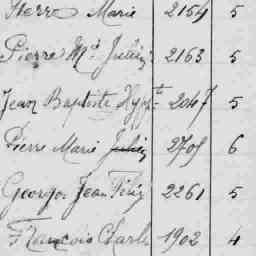 Pierre Marie 2154 5
Pierre M.ie Julien 2163 5
Jean Baptiste Hypte 2047 5
Pierre Marie Julien 2709 6
Georges Jean Félix 2261 5
François Charles 1902 4